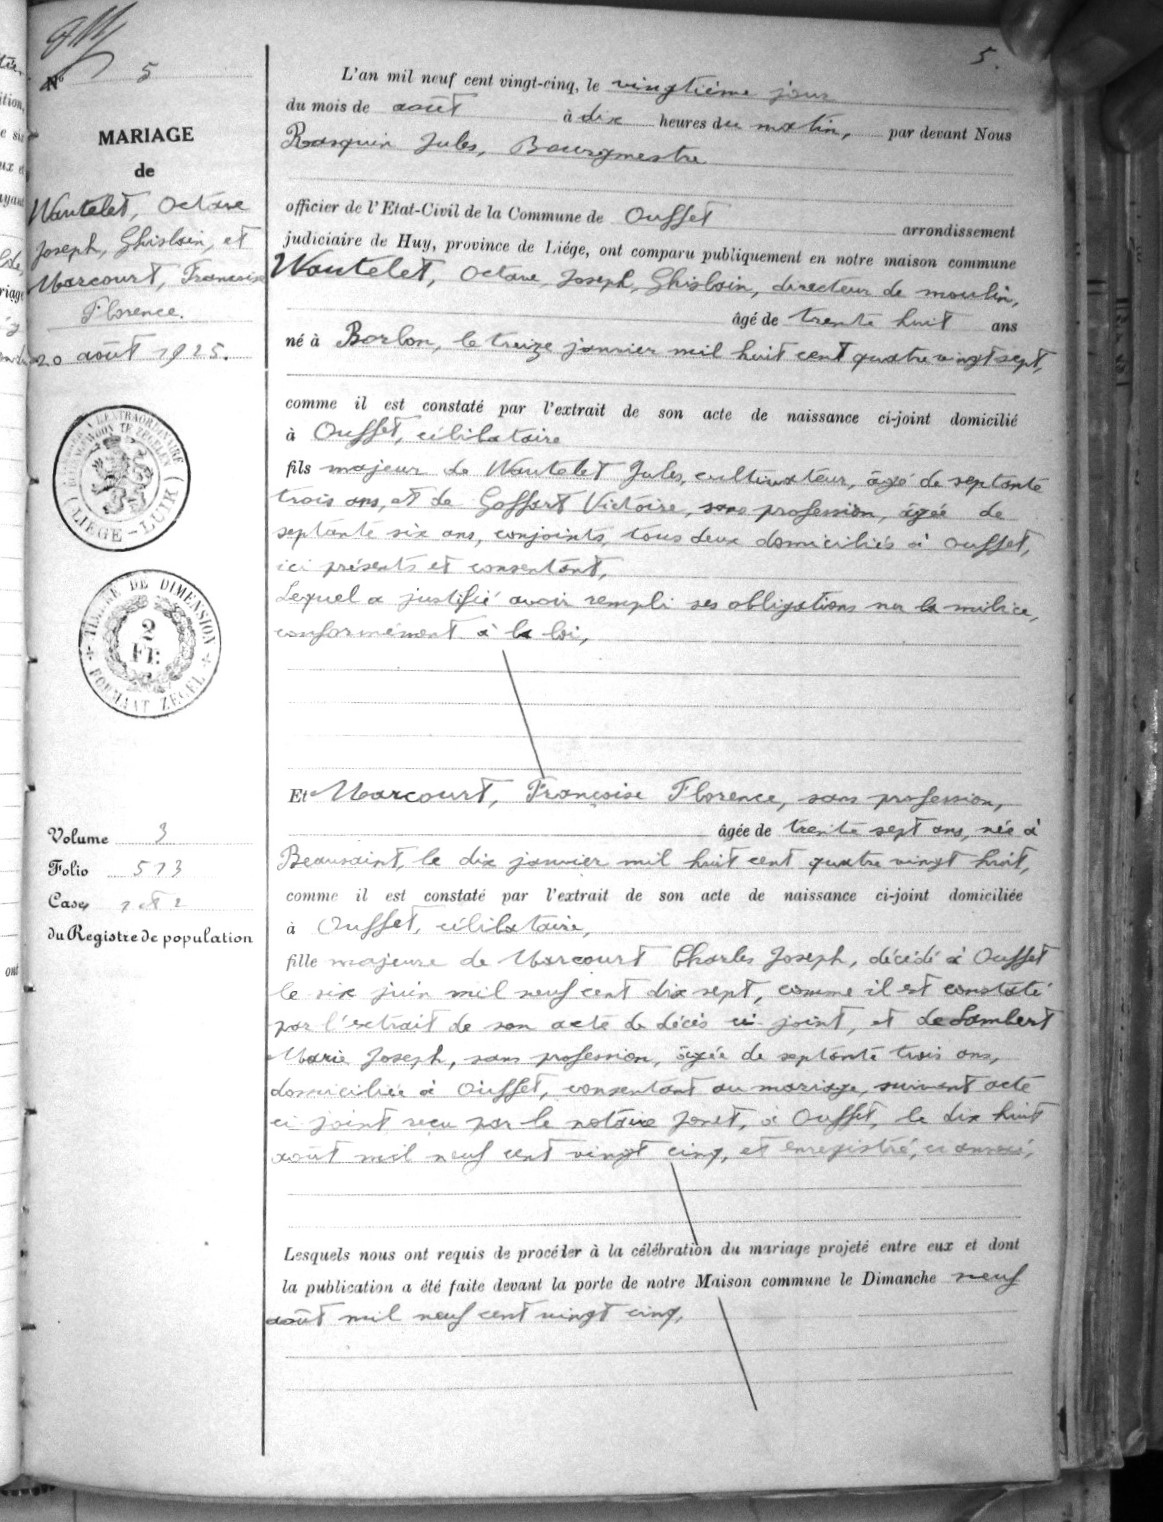 5.
N° 5
MARIAGE
de
Wautelet, Octave
Joseph, Ghislain, et
Marcourt, Françoise
Florence.
20 août 1925.
TIMBRE DE DIMENSION
2
FR.
FORMAAT ZEGEL
(LIÉGE-LUIK)
Volume 3
Folio 513
Case 1 et 2
du Registre de population
L'an mil neuf cent vingt-cinq, le vingtième jour
du mois de août à dix heures du matin, par devant Nous
Rasquin Jules, Bourgmestre
officier de l'Etat-Civil de la Commune de Ouffet arrondissement
judiciaire de Huy, province de Liége, ont comparu publiquement en notre maison commune
Wautelet, Octave, Joseph, Ghislain, directeur de moulin,
âgé de trente huit ans
né à Borlon, le treize janvier mil huit cent quatre vingt sept,
comme il est constaté par l'extrait de son acte de naissance ci-joint domicilié
à Ouffet, célibataire
fils majeur de Wautelet Jules, cultivateur, âgé de septante
trois ans, et de Goffart Victoire, sans profession, âgée de
septante six ans, conjoints, tous deux domiciliés à Ouffet,
ici présents et consentant,
Lequel a justifié avoir rempli ses obligations sur la milice,
conformément à la loi,
Et Marcourt, Françoise Florence, sans profession,
âgée de trente sept ans, née à
Beausaint, le dix janvier mil huit cent quatre vingt huit,
comme il est constaté par l'extrait de son acte de naissance ci-joint domiciliée
à Ouffet, célibataire,
fille majeure de Marcourt Charles Joseph, décédé à Ouffet
le six juin mil neuf cent dix sept, comme il est constaté
par l'extrait de son acte de décès ci joint, et de Lambert
Marie Joseph, sans profession, âgée de septante trois ans,
domiciliée à Ouffet, consentant au mariage, suivant acte
ci joint reçu par le notaire Jonet, à Ouffet, le dix huit
août mil neuf cent vingt cinq, et enregistré, ci annexé,
Lesquels nous ont requis de procéder à la célébration du mariage projeté entre eux et dont
la publication a été faite devant la porte de notre Maison commune le Dimanche neuf
août mil neuf cent vingt cinq,